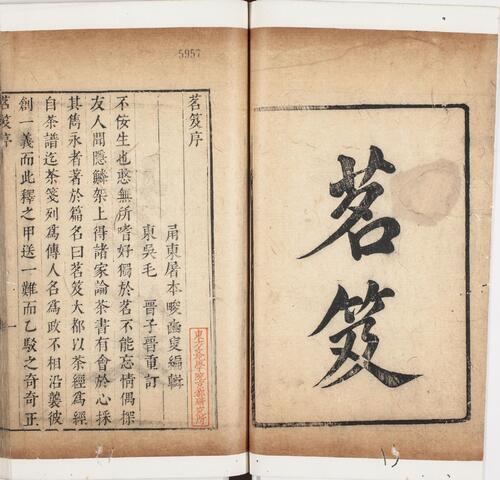 茗笈
5957
茗笈序
甬東屠本畯豳叟編輯
東吳毛 晉子晉重訂
不佞生也憨無所嗜好獨於茗不能忘情偶探
友人聞隱鱗架上得諸家論茶書有會於心採
其雋永者著於篇名曰茗笈大都以茶經爲經
自茶譜迄茶箋列爲傳人各爲政不相沿襲彼
創一義而此釋之甲送一難而乙駁之奇奇正
茗笈序
東方文化學院京都研究所